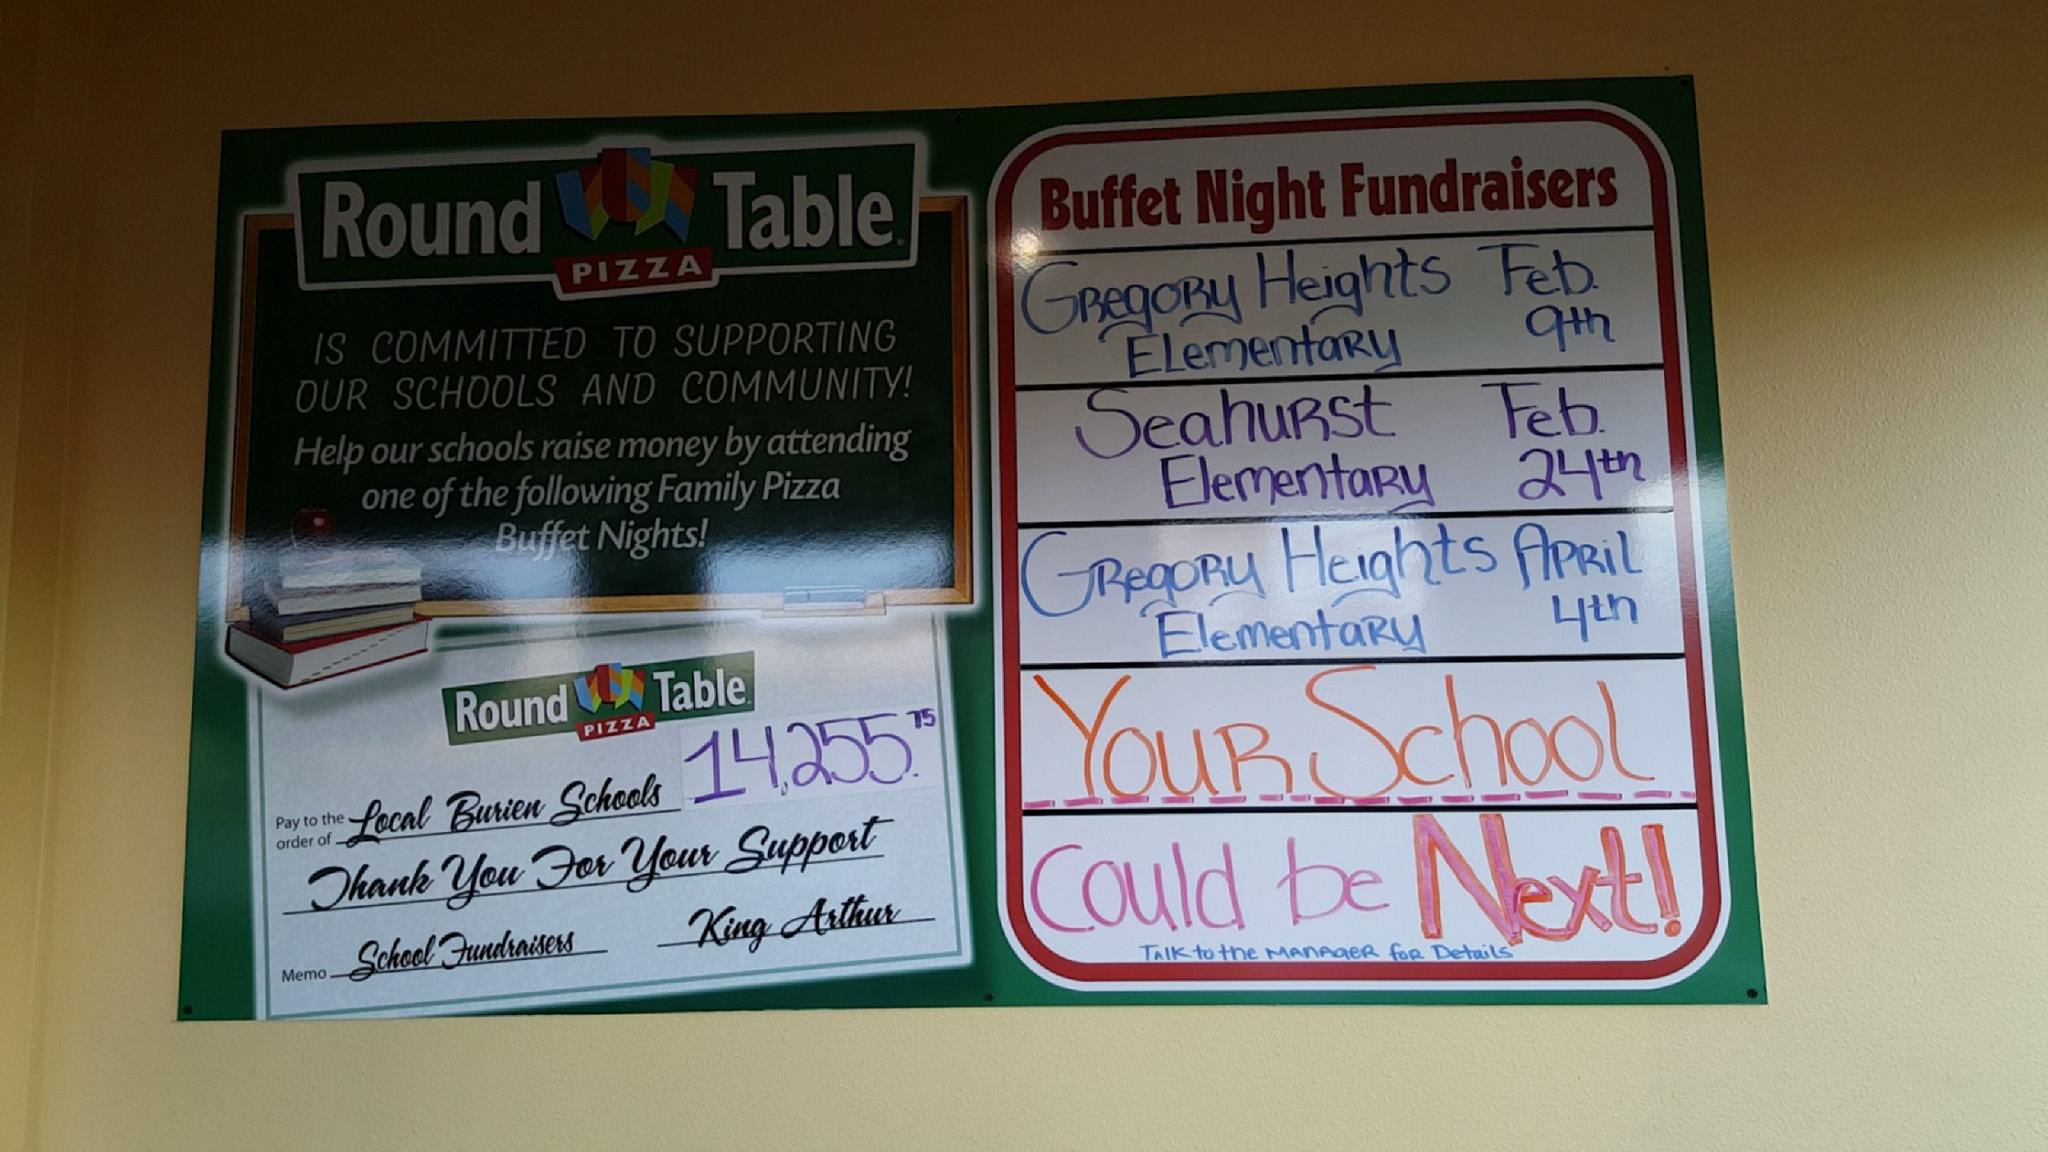 Round Table
PIZZA
IS COMMITTED TO SUPPORTING
OUR SCHOOLS AND COMMUNITY!
Help our schools raise money by attending
one of the following Family Pizza
Buffet Nights!
Round Table
PIZZA
14,255.75
Pay to the
order of Local Burien Schools
Thank You For Your Support
Memo School Fundraisers King Arthur
Buffet Night Fundraisers
Gregory Heights Feb.
Elementary 9th
Seahurst Feb.
Elementary 24th
Gregory Heights April
Elementary 4th
Your School
Could be Next!
Talk to the Manager for Details